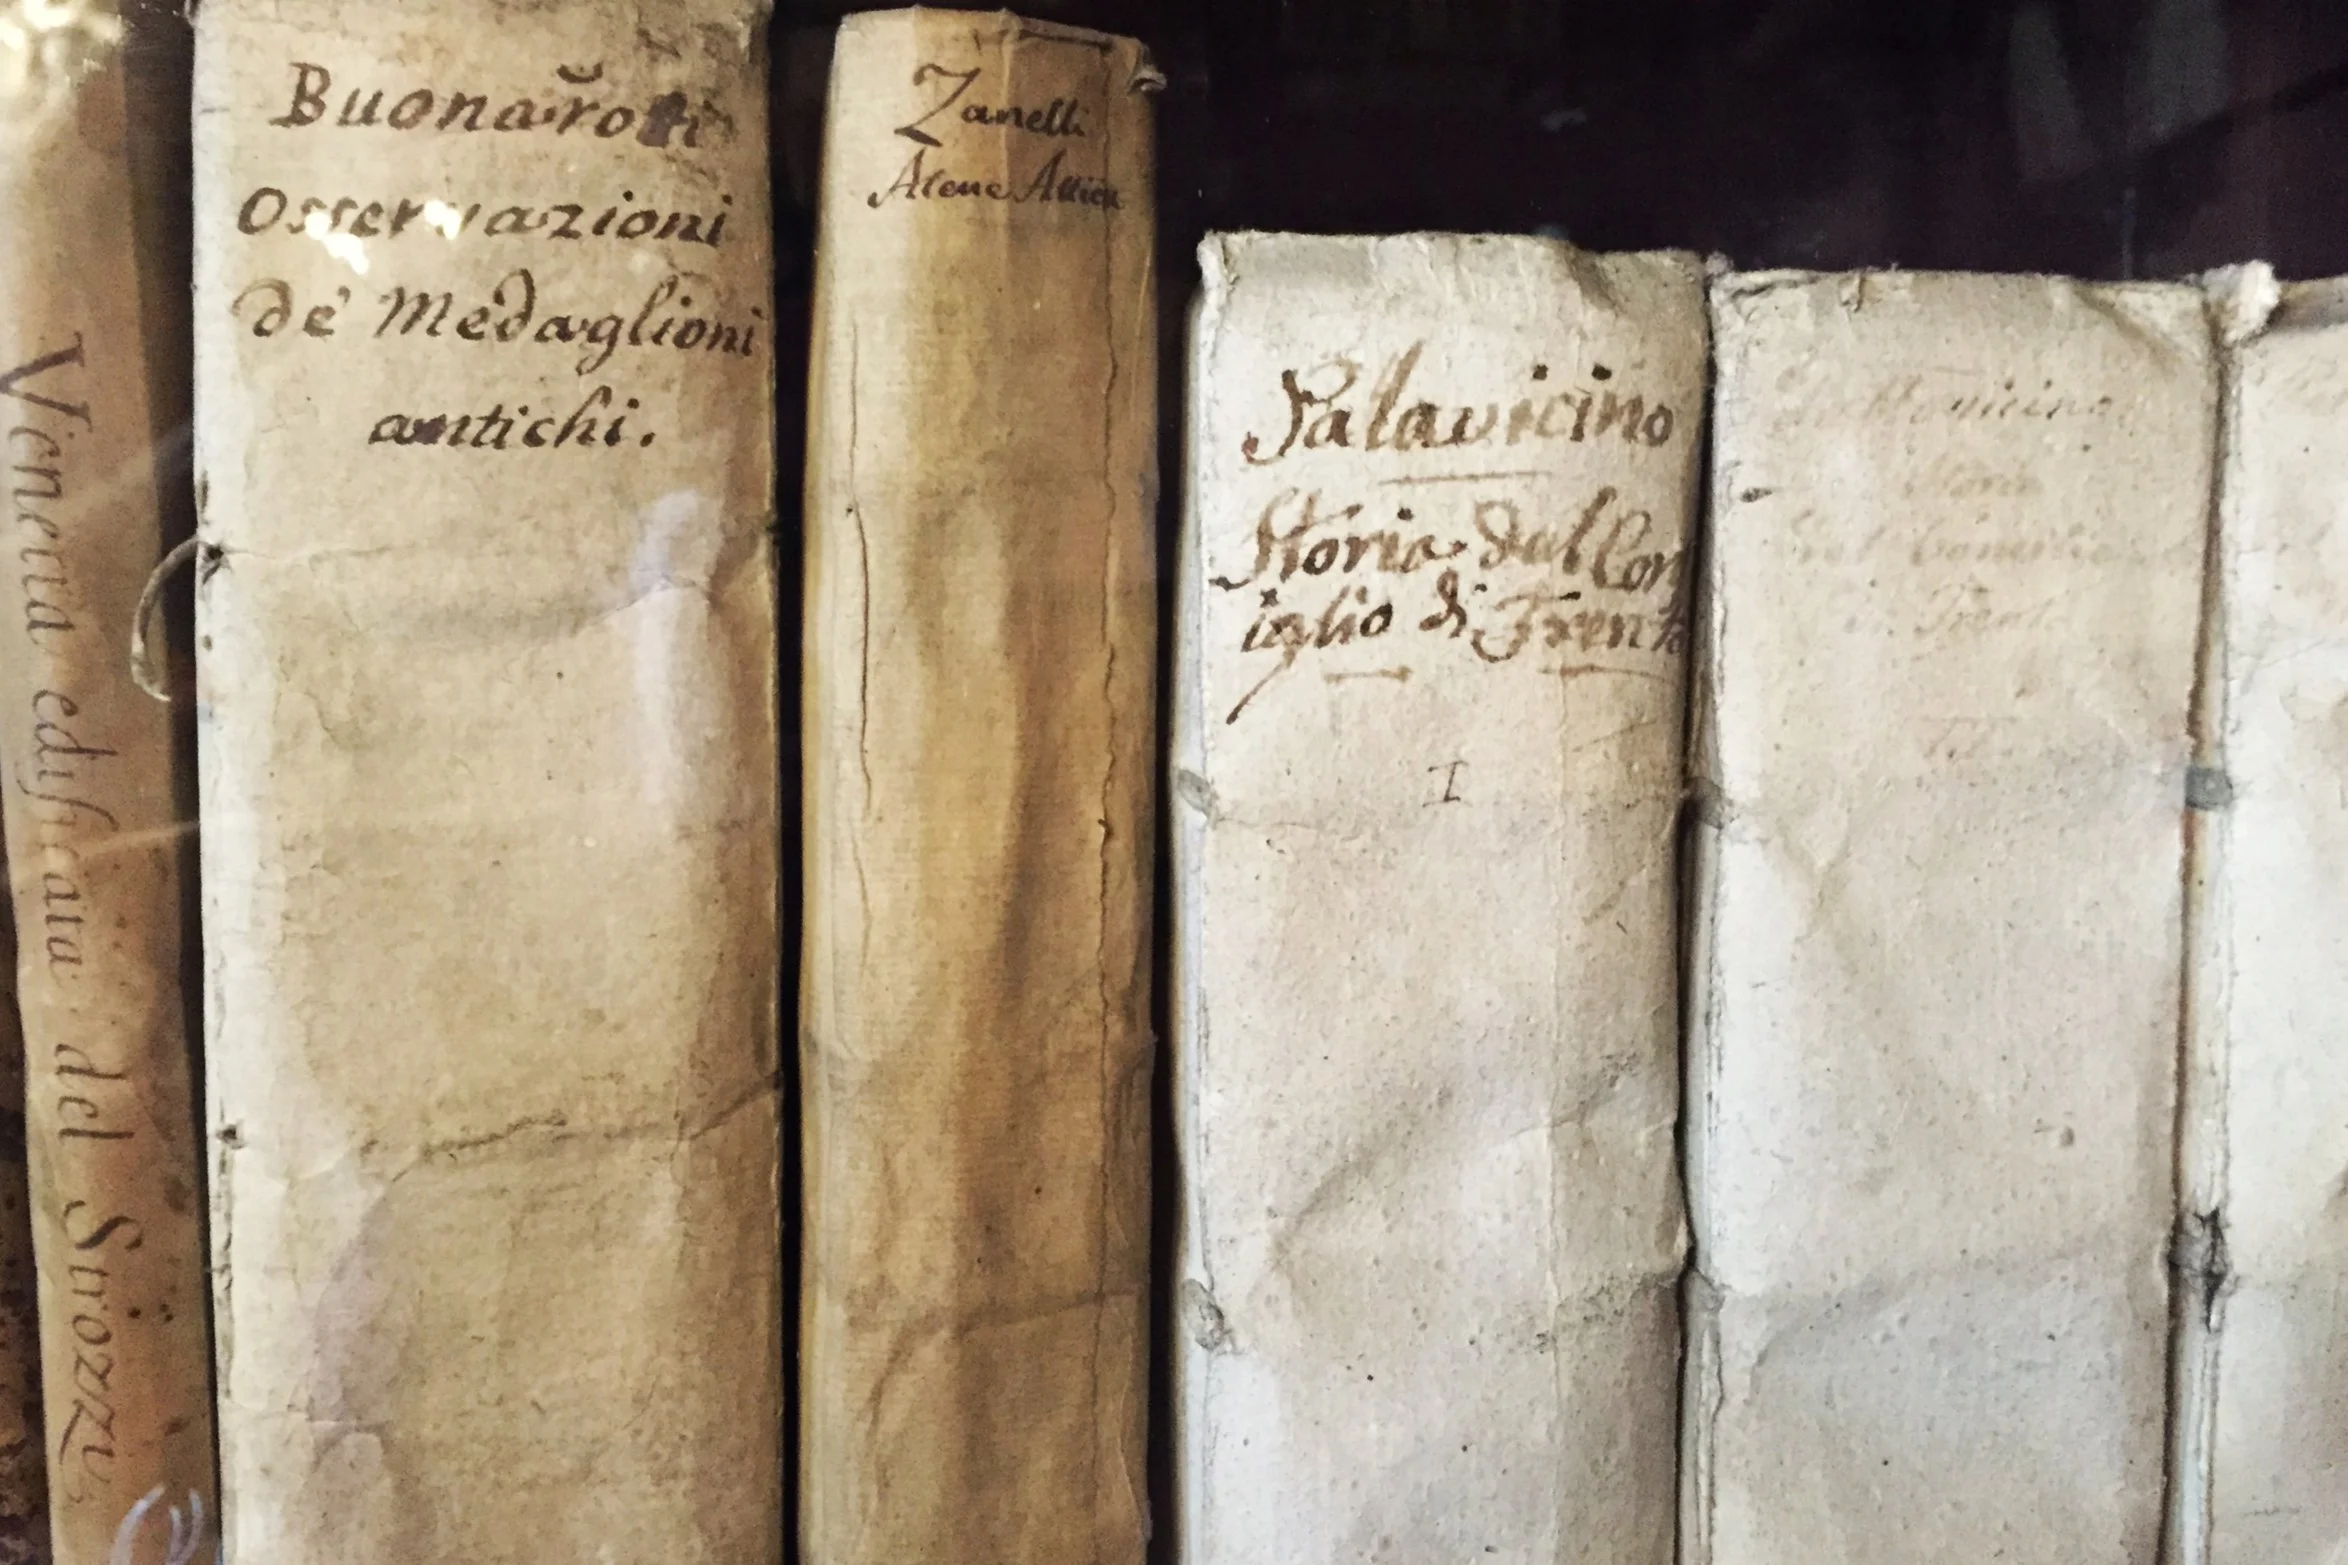 Venetia edificata del Strozzi
Buonar̆oti
Osservazioni
de' Medaglioni
antichi.
Zanelli
Atene Attica
Palavicino
Storia del Con
iglio di Trento
I
Storia
del Concilio
di Trent